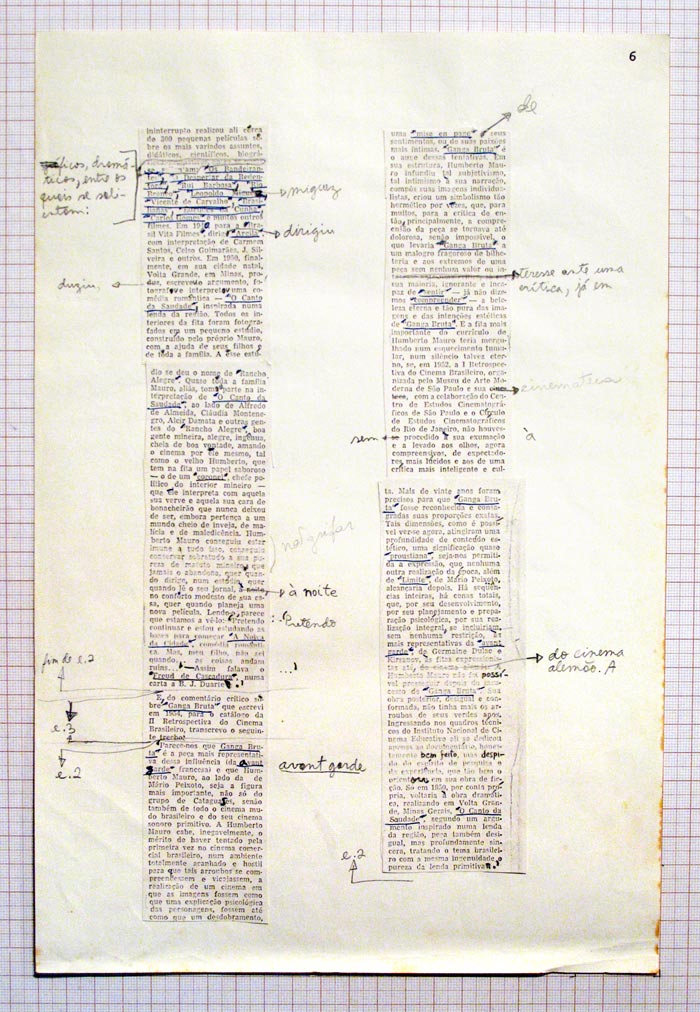 6
ininterrupto realizou ali cerca
de 300 pequenas películas so-
bre os mais variados assuntos,
didáticos, científicos, biográ-
ficos, dramá-
ticos, entre os
quais se sali-
entam:
"Os Bandeiran-
"Despertar da Reden-
"Rui Barbosa"
"Vicente de Carvalho"
"Euclides da Cunha"
"Carlos Gomes" e muitos outros
filmes. Em 1940 para a
Vita Filmes "Argila"
miguez
dirigiu
com interpretação de Carmem
Santos, Celso Guimarães, J. Sil-
veira e outros. Em 1950, final-
mente, em sua cidade natal,
Volta Grande, em Minas, pro-
duziu,
escreveu argumento, fo-
tografou e interpretou uma co-
média romântica — "O Canto
da Saudade", inspirada numa
lenda da região. Todos os in-
teriores da fita foram fotogra-
fados em um pequeno estúdio,
construído pelo próprio Mauro,
com a ajuda de seus filhos e
de toda a família. A êsse estú-
dio se deu o nome de "Rancho
Alegre". Quase toda a família
Mauro, aliás, toma parte na in-
terpretação de "O Canto da
Saudade", ao lado de Alfredo
de Almeida, Cláudia Montene-
gro, Alcir Damata e outras gen-
tes do "Rancho Alegre", boa
gente mineira, alegre, ingênua,
cheia de boa vontade, amando
o cinema por êle mesmo, tal
como o velho Humberto, que
tem na fita um papel saboroso
— o de um "coronel", chefe po-
lítico do interior mineiro —
que êle interpreta com aquela
sua verve e aquela sua cara de
bonacheirão que nunca deixou
de ser, embora pertença a um
mundo cheio de inveja, de ma-
lícia e de maledicência. Humberto
Mauro conseguiu estar
imune a tudo isso, conseguiu
conservar sobretudo a sua pu-
reza de matuto mineiro que
jamais o abandona, quer quan-
do dirige, num estúdio, quer
quando lê o seu jornal, à noite
à noite
no confôrto modesto de sua ca-
sa, quer quando planeja uma
nova película. Lendo-o, parece
que estamos a vê-lo: "Pretendo
: "Pretendo
continuar e estou estudando as
bases para começar "A Noiva
da Cidade", comédia romântica.
Mas, meu filho, não sei
quando... as coisas andam
ruins..." — Assim falava o
..."
"Freud de Cascadura", numa
carta a B. J. Duarte.
fim do e.2
E, do comentário crítico sô-
bre "Ganga Bruta" que escrevi
em 1954, para o catálogo da
II Retrospectiva do Cinema
Brasileiro, transcrevo o seguin-
te trecho:
e.3
e.2
"Parece-nos que Ganga Bru-
ta" é a peça mais representati-
va dessa influência (da avant
garde francesa) e que Hum-
avant garde
berto Mauro, ao lado de
Mário Peixoto, seja a figura
mais importante, não só do
grupo de Cataguases, senão
também de todo o cinema mu-
do brasileiro e do seu cinema
sonoro primitivo. A Humberto
Mauro cabe, inegavelmente, o
mérito de haver tentado pela
primeira vez no cinema comer-
cial brasileiro, num ambiente
totalmente acanhado e hostil
para que tais arroubos se com-
preendessem e vicejassem, a
realização de um cinema em
que as imagens fossem como
que uma explicação psicológica
das personagens, fossem até
como que um desdobramento,
uma "mise en page" de seus
de
sentimentos, ou de suas paixões
mais íntimas. "Ganga Bruta" é
o auge dessas tentativas. Em
sua estrutura, Humberto Mauro
infundiu tal subjetivismo,
tal intimismo à sua narração,
compôs suas imagens individua-
listas, criou um simbolismo tão
hermético por vezes, que, para
muitos, para a crítica de en-
tão, principalmente, a compre-
ensão da peça se tornava até
dolorosa, senão impossível, o
que levaria "Ganga Bruta" a
um malogro fragoroso de bilhe-
teria e aos extremos de uma
peça sem nenhum valor ou in-
teresse ante uma
crítica, já em
sua maioria, ignorante e inca-
paz de "sentir" — já não dize-
mos "compreender" — a bele-
za eterna e tão pura das ima-
gens e das intenções estéticas
de "Ganga Bruta". E a fita mais
importante do currículo de
Humberto Mauro teria mergu-
lhado num esquecimento tumu-
lar, num silêncio talvez eter-
no, se, em 1952, a I Retrospec-
tiva do Cinema Brasileiro, orga-
nizada pelo Museu de Arte Mo-
derna de São Paulo e sua
cinemateca
com a colaboração do Cen-
tro de Estudos Cinematográ-
ficos de São Paulo e o Círculo
de Estudos Cinematográficos
do Rio de Janeiro, não houves-
sem
procedido à sua exumação
à
e a levado aos olhos, agora
compreensivos, de expectado-
res mais lúcidos e aos de uma
crítica mais inteligente e cul-
ta. Mais de vinte anos foram
precisos para que "Ganga Bru-
ta" fosse reconhecida e consa-
gradas suas proporções exatas.
Tais dimensões, como é possí-
vel ver-se agora, atingiram uma
profundidade de conteúdo es-
tético, uma significação quase
proustiana, seja-nos permiti-
da a expressão, que nenhuma
outra realização da época, além
de "Limite", de Mário Peixoto,
alcançaria depois. Há seqüên-
cias inteiras, há cenas totais,
que, por seu desenvolvimento,
por seu planejamento e prepa-
ração psicológica, por sua rea-
lização integral, se incluiriam,
sem nenhuma restrição, às
mais representativas da "avant
garde" de Germaine Dulac e
Kirsanov, às fitas expressionis-
tas
do cinema
alemão. A
Humberto Mauro não foi possí-
vel prosseguir depois do insu-
cesso de "Ganga Bruta". Sua
obra posterior, desigual e con-
formada, não tinha mais os ar-
roubos de seus verdes anos.
Ingressando nos quadros técni-
cos do Instituto Nacional de Ci-
nema Educativo ali se dedicou
apenas ao documentário, hones-
tamente bem feito, mas despi-
do do espírito de pesquisa e
de experiência, que tão bem o
orientou em sua obra de fic-
ção. Só em 1950, por conta pró-
pria, voltaria à obra dramáti-
ca, realizando em Volta Gran-
de, Minas Gerais, "O Canto da
Saudade", segundo um argu-
mento inspirado numa lenda
da região, peça também desi-
gual, mas profundamente sin-
cera, tratando o tema brasilei-
ro com a mesma ingenuidade e
pureza da lenda primitiva".
e.2